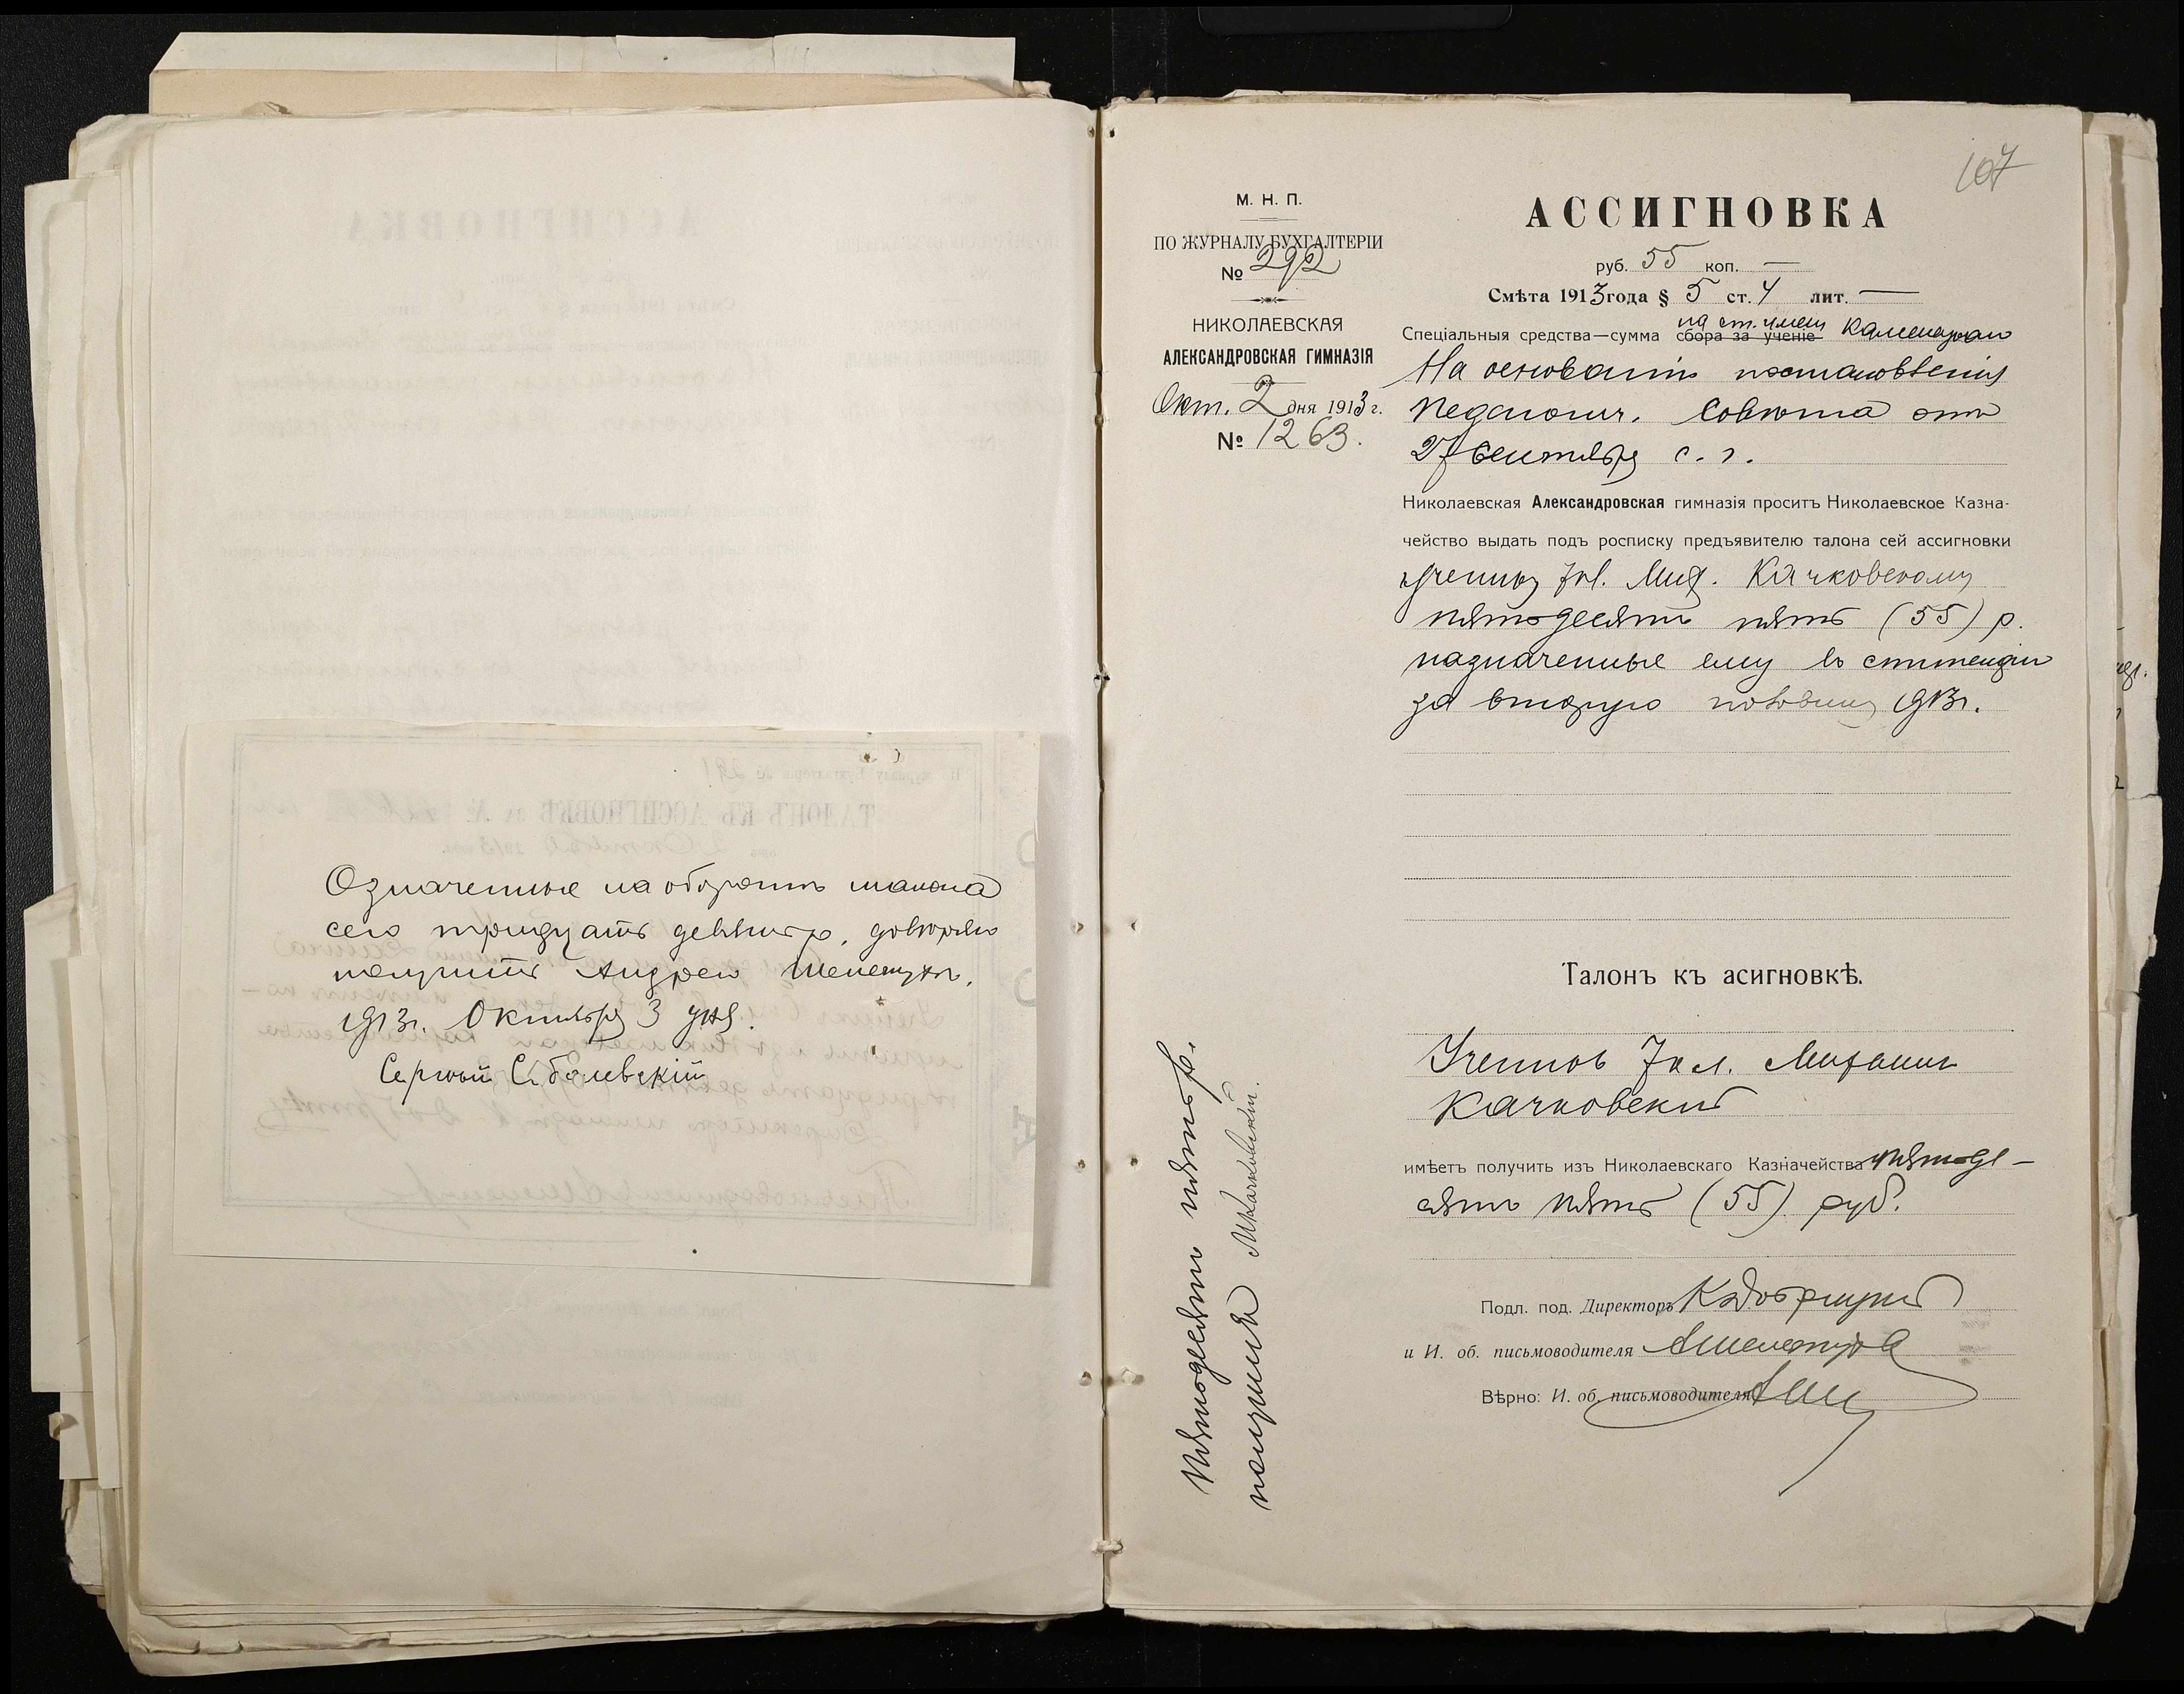 Означенные на оборотѣ талона
сего тридцать девять р. довѣряю
получить Андрею Шелестухѣ.
1913 г. Октября 3 дня.
Сергѣй Соболевскій
107
М. Н. П.
ПО ЖУРНАЛУ БУХГАЛТЕРІИ
№ 292
НИКОЛАЕВСКАЯ
АЛЕКСАНДРОВСКАЯ ГИМНАЗІЯ
Окт. 2 дня 1913 г.
№ 1263.
АССИГНОВКА
руб. 55 коп. —
Смѣта 1913 года § 5 ст. 4 лит. —
на ст. имени
Спеціальныя средства—сумма сбора за ученіе
На основаніи постановленія
Педагогич. Совѣта отъ
27 Сентября с. г.
Николаевская Александровская гимназія проситъ Николаевское Казна-
чейство выдать подъ росписку предъявителю талона сей ассигновки
ученику 7 кл. Мих. Качковскому
пятьдесятъ пять (55) р.
назначенные ему въ стипендію
за вторую половину 1913 г.
Талонъ къ асигновкѣ.
Ученикъ 7 кл. Михаилъ
Качковскій
имѣетъ получить изъ Николаевскаго Казначейства пятьде-
сятъ пять (55) руб.
Подл. под. Директоръ
и И. об. письмоводителя
Вѣрно: И. об. письмоводителя
Пятьдесятъ пять р.
получилъ М. Качковскій.